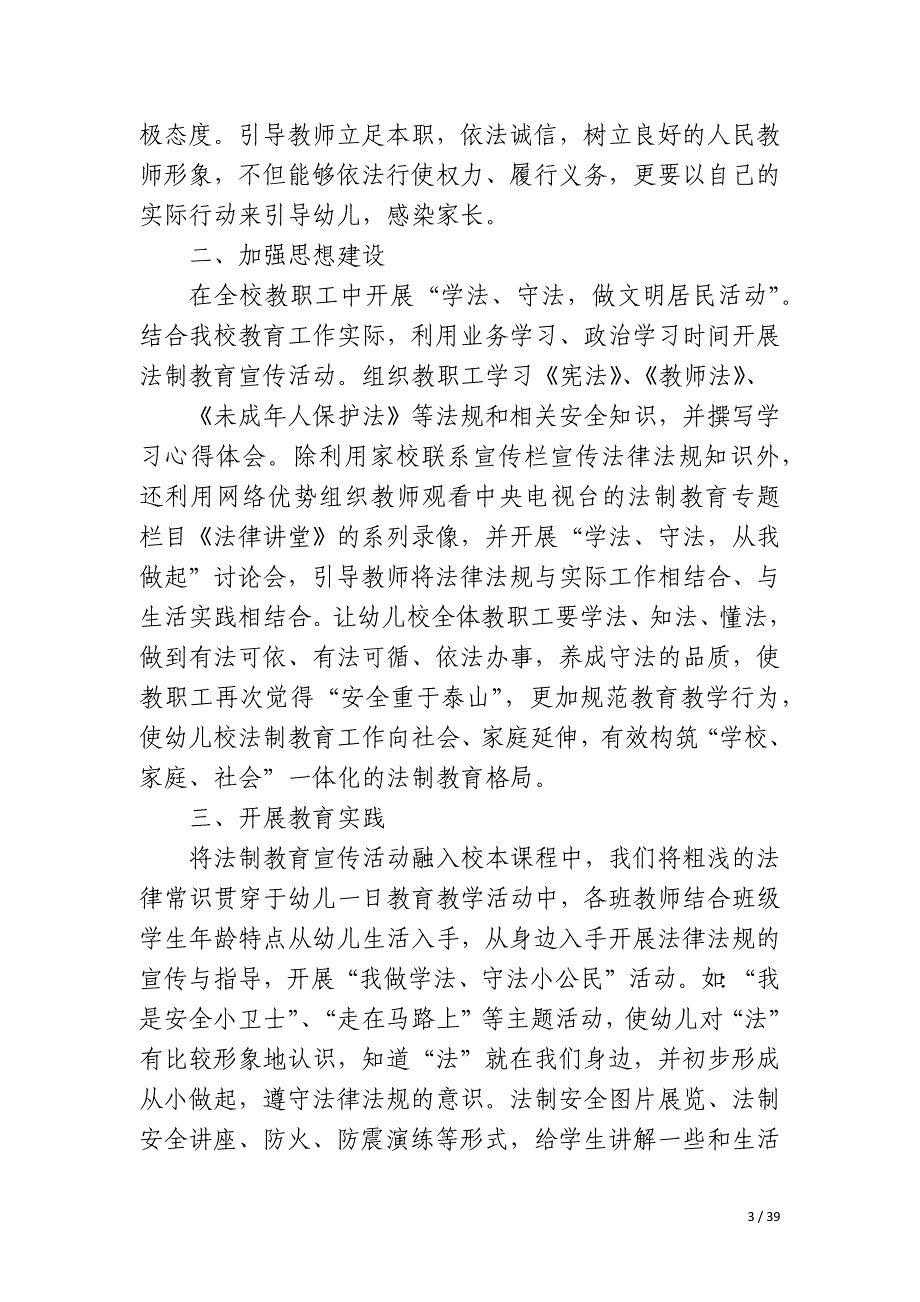 极态度。引导教师立足本职，依法诚信，树立良好的人民教
师形象，不但能够依法行使权力、履行义务，更要以自己的
实际行动来引导幼儿，感染家长。
二、加强思想建设
在全校教职工中开展“学法、守法，做文明居民活动”。
结合我校教育工作实际，利用业务学习、政治学习时间开展
法制教育宣传活动。组织教职工学习《宪法》、《教师法》、
《未成年人保护法》等法规和相关安全知识，并撰写学
习心得体会。除利用家校联系宣传栏宣传法律法规知识外，
还利用网络优势组织教师观看中央电视台的法制教育专题
栏目《法律讲堂》的系列录像，并开展“学法、守法，从我
做起”讨论会，引导教师将法律法规与实际工作相结合、与
生活实践相结合。让幼儿校全体教职工要学法、知法、懂法，
做到有法可依、有法可循、依法办事，养成守法的品质，使
教职工再次觉得“安全重于泰山”，更加规范教育教学行为，
使幼儿校法制教育工作向社会、家庭延伸，有效构筑“学校、
家庭、社会”一体化的法制教育格局。
三、开展教育实践
将法制教育宣传活动融入校本课程中，我们将粗浅的法
律常识贯穿于幼儿一日教育教学活动中，各班教师结合班级
学生年龄特点从幼儿生活入手，从身边入手开展法律法规的
宣传与指导，开展“我做学法、守法小公民”活动。如：“我
是安全小卫士”、“走在马路上”等主题活动，使幼儿对“法”
有比较形象地认识，知道“法”就在我们身边，并初步形成
从小做起，遵守法律法规的意识。法制安全图片展览、法制
安全讲座、防火、防震演练等形式，给学生讲解一些和生活
3 / 39